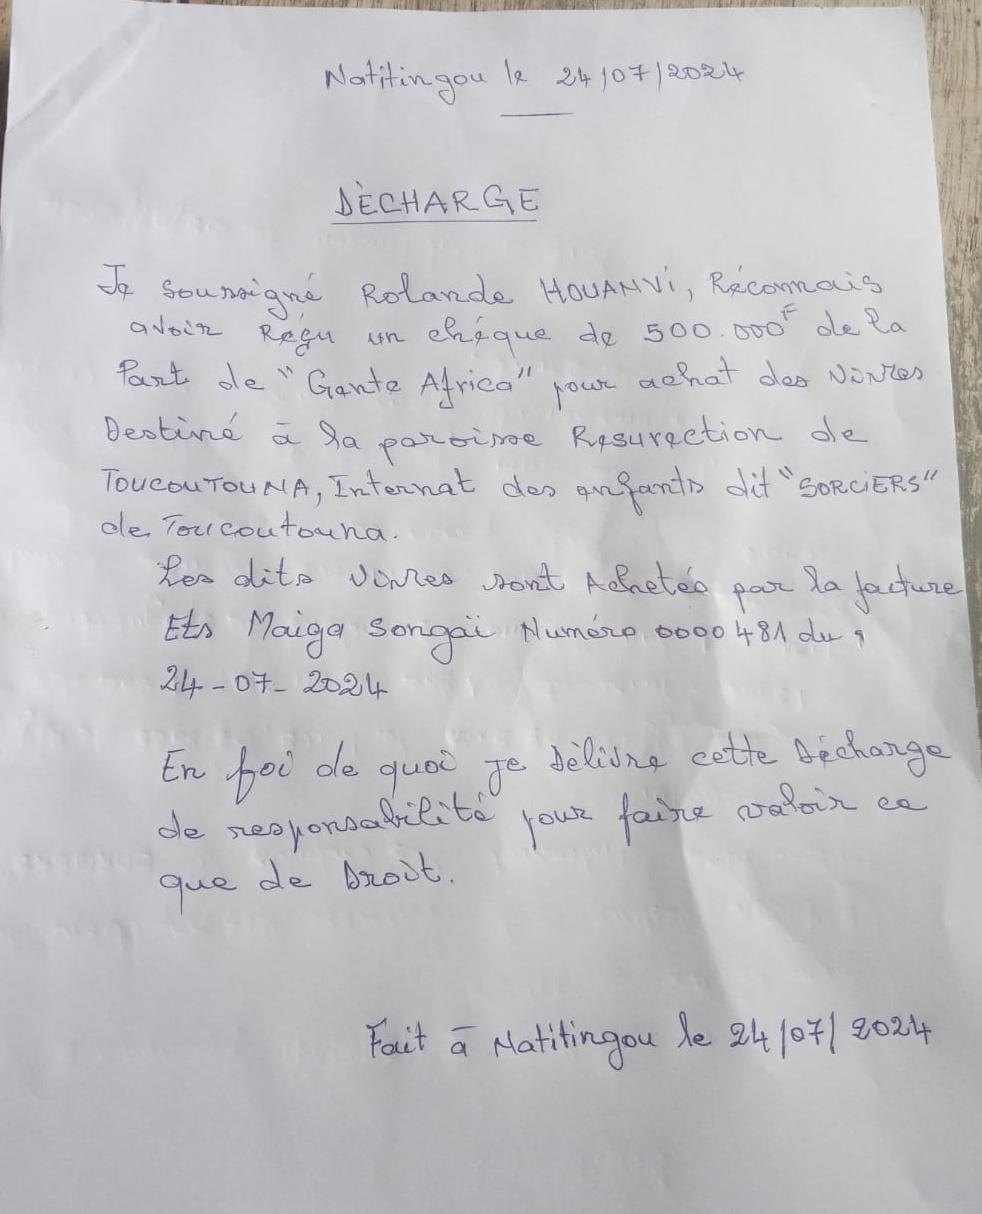 Natitingou le 24/07/2024
DÈCHARGE
Je Soussigné Rolande HOUANVi, Réconnais
avoir Reçu un chéque de 500.000F de la
Part de "Gante Africa" pour achat des Vivres
Destiné à la paroisse Resurection de
TOUCOUTOUNA, Internat des enfants dit "SORCiERS"
de Toucoutouna.
Les dits vivres sont Achetés par la facture
Ets Maiga Songaï Numéro 0000481 du
24-07-2024
En foi de quoi je Dèlivre cette Décharge
de responsabilité pour faire valoir ce
que de Droit.
Fait à Natitingou le 24/07/2024